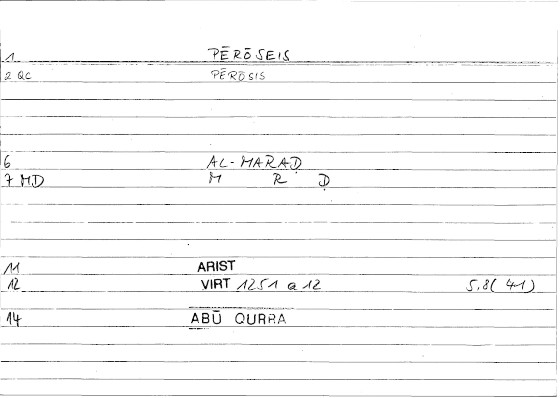 1 PĒRŌSEIS
2 QC PĒRŌSIS
6 AL-MARAḌ
7 MD M R Ḍ
11 ARIST
12 VIRT 1251 a 12 5,8(41)
14 ABŪ QURRA